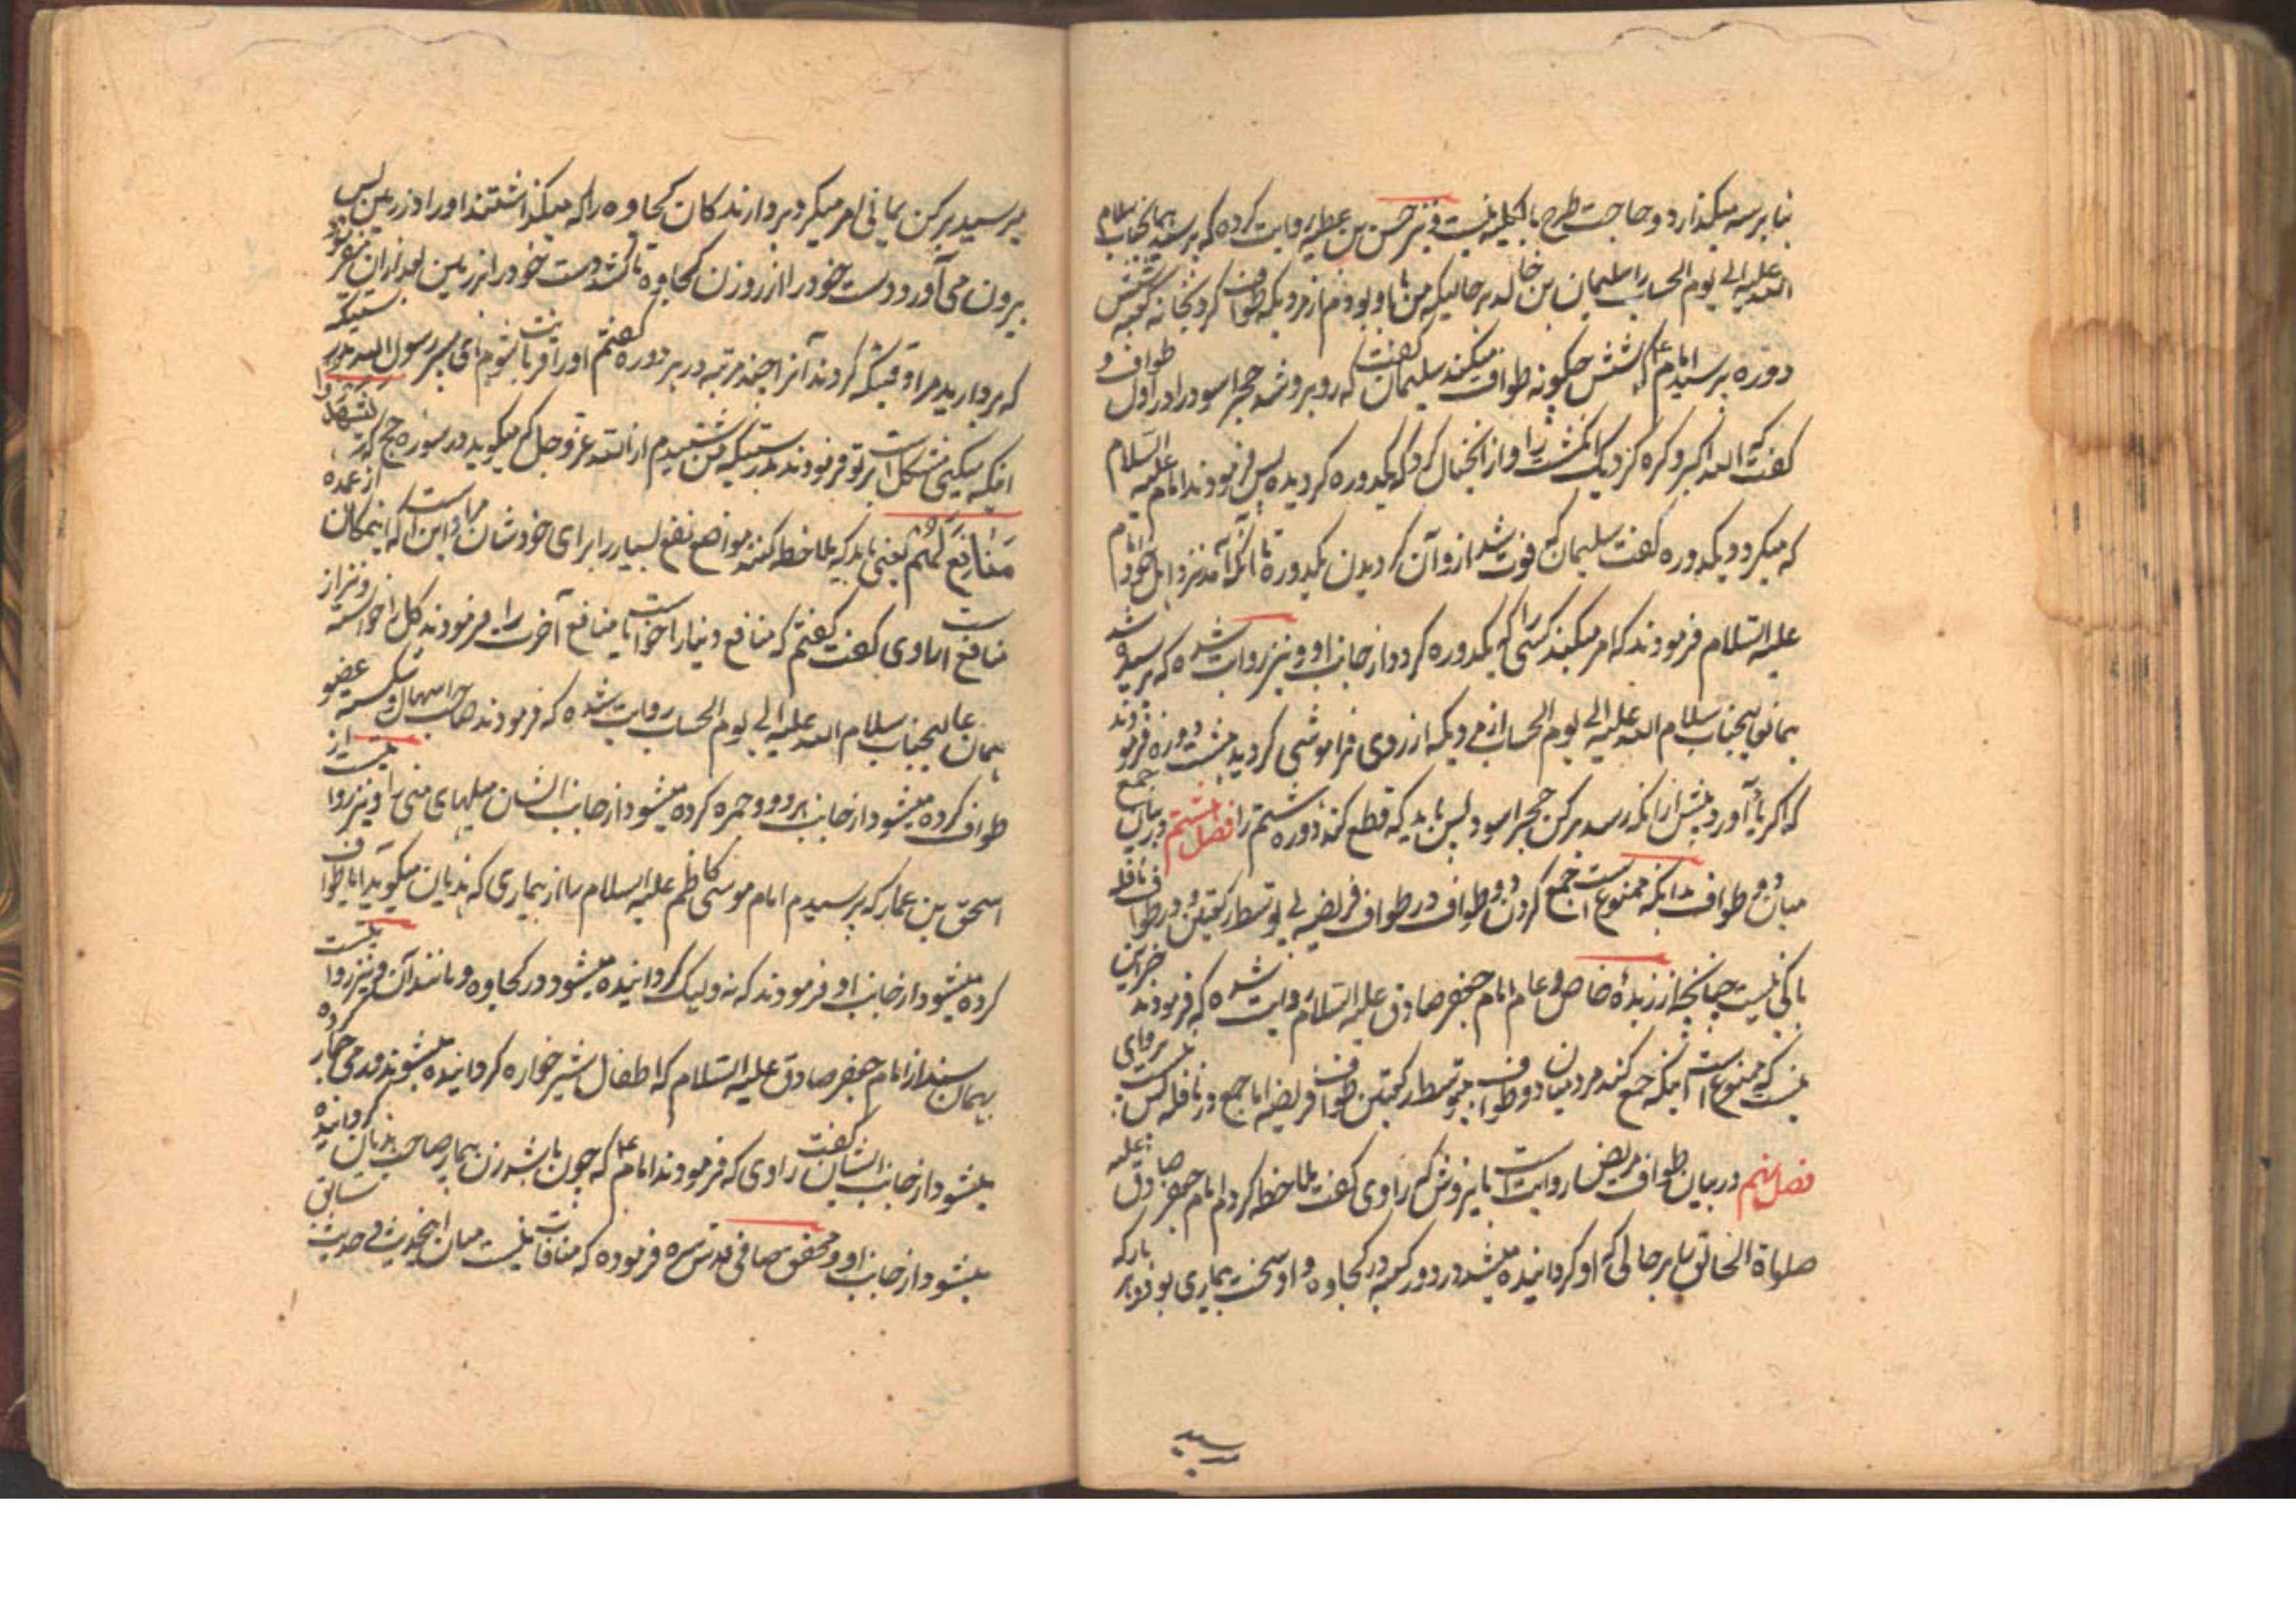 بنا بر سه میکذارد و حاجت طرح بالکلیه نیست و نیز حسن بن عطیه روایت کرده که پرسید همانجناب سلام
الله علیه الی یوم الحساب را سلیمان بن خالد بر حالیکه من با او بودم از مردیکه طواف کرد بخانه کعبه شش
دوره پرسید امام ع که شش چکونه طواف میکند سلیمان گفت که روبرو شد حجر اسود را در اول طواف و
گفت که الله اکبر و کره کرد یک انکشت را و از خیال کرد که یکدوره کردیده پس فرمودند امام علیه السلام
که میکردد یکدوره گفت سلیمان که فوت شد ازو آن کردیدن یکدوره تا آنکه آمد نزد اهل خود امام
علیه السلام فرمودند که امر میکند کسی را که یکدوره کردد از جانب او و نیز روایت شده که پرسیده شد
همانعالیجناب سلام الله علیه الی یوم الحساب از مردیکه از روی فراموشی کردید هشت دوره فرمودند
که اکر یاد آورد پیش از آنکه رسد برکن حجر اسود پس باید که قطع کند دوره هشتم را فصل هشتم در بیان جمع
میان دو طواف بدانکه ممنوع است جمع کردن دو طواف در طواف فریضه بی توسط رکعتین و در طواف نافله
باکی نیست چنانچه از زبدهٔ خاص و عام امام جعفر صادق علیه السلام روایت شده که فرمودند جز این
نیست که ممنوع است اینکه جمع کند مرد میان دو طواف بی توسط رکعتین طواف فریضه اما جمع در نافله پس نیست پروای
فصل نهم در بیان طواف مریض روایت است راوی گفت ملاحظه کردم امام جعفر صادق علیه
صلواة الخالق را بر حالی که او کردانیده میشد در دور کعبه در کجاوه و او سخت بیماری بود هر بارکه
میرسید برکن یمانی امر میکرد بردارندکان کجاوه را که میکذاشتند او را در زمین پس
بیرون می آورد دست خود را از روزن کجاوه تا کشد دست خود را بر زمین بعد از آن میفرمود
که بردارید مرا وقتیکه کردند آنرا چند مرتبه در هر دوره گفتم او را فدایت شوم ای پسر رسول الله بدرستیکه
اینکه میکنی مشکل است برتو فرمودند بدرستیکه من شنیدم از الله عزوجل که میکوید در سوره حج که لیشهدوا
منافع لهم یعنی باید که ملاحظه کنند مواضع نفع بسیار را برای خودشان و مراد است این را که اینمکان از عمده
منافع است راوی گفت گفتم که منافع دنیا را خواست یا منافع آخرت را فرمودند کل را خواسته و نیز از
همان عالیجناب سلام الله علیه الی یوم الحساب روایت شده که فرمودند صاحب اسهال و شکسته عضو
طواف کرده میشود از جانب هر دو و جمره کرده میشود از جانب ایشان میلهای منی را و نیز روایتست از
اسحق بن عمار که پرسیدم امام موسی کاظم علیه السلام را از بیماری که هذیان میکوید آیا طواف
کرده میشود از جانب او فرمودند که نه ولیک کردانیده میشود در کجاوه و مانند آن و نیز روایتست
بهمان سند از امام جعفر صادق علیه السلام که اطفال شیر خواره کردانیده میشوند و رمی جمار کرده
میشود از جانب ایشان گفت راوی که فرمودند امام ع که چون باشد زن بیمار صاحب هذیان کردانیده
میشود از جانب او و محقق صافی قدس سره فرموده که منافات نیست میان اینحدیث و حدیث سابق